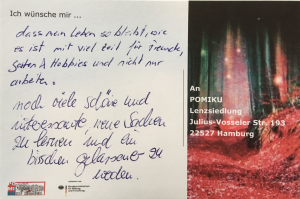 Ich wünsche mir ...
dass mein Leben so bleibt, wie
es ist mit viel Zeit für Freunde,
Garten & Hobbies und nicht nur
arbeiten.
noch viele schöne und
interessante, neue Sachen
zu lernen und ein
bisschen gelassener zu
werden.
An
POMIKU
Lenzsiedlung
Julius-Vosseler Str. 193
22527 Hamburg